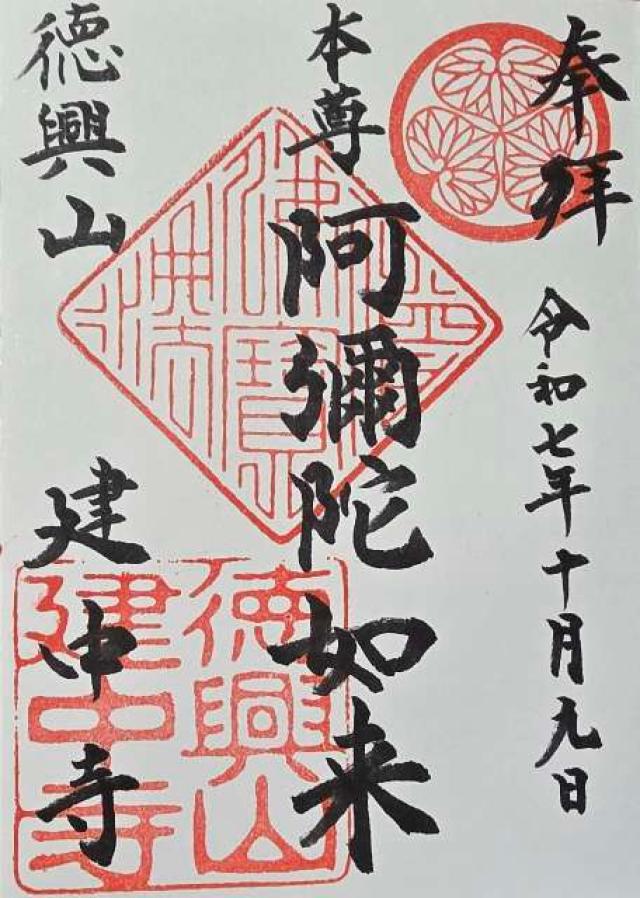 奉拝
令和七年十月九日
本尊 阿彌陀如来
徳興山
建中寺
徳興山
建中寺